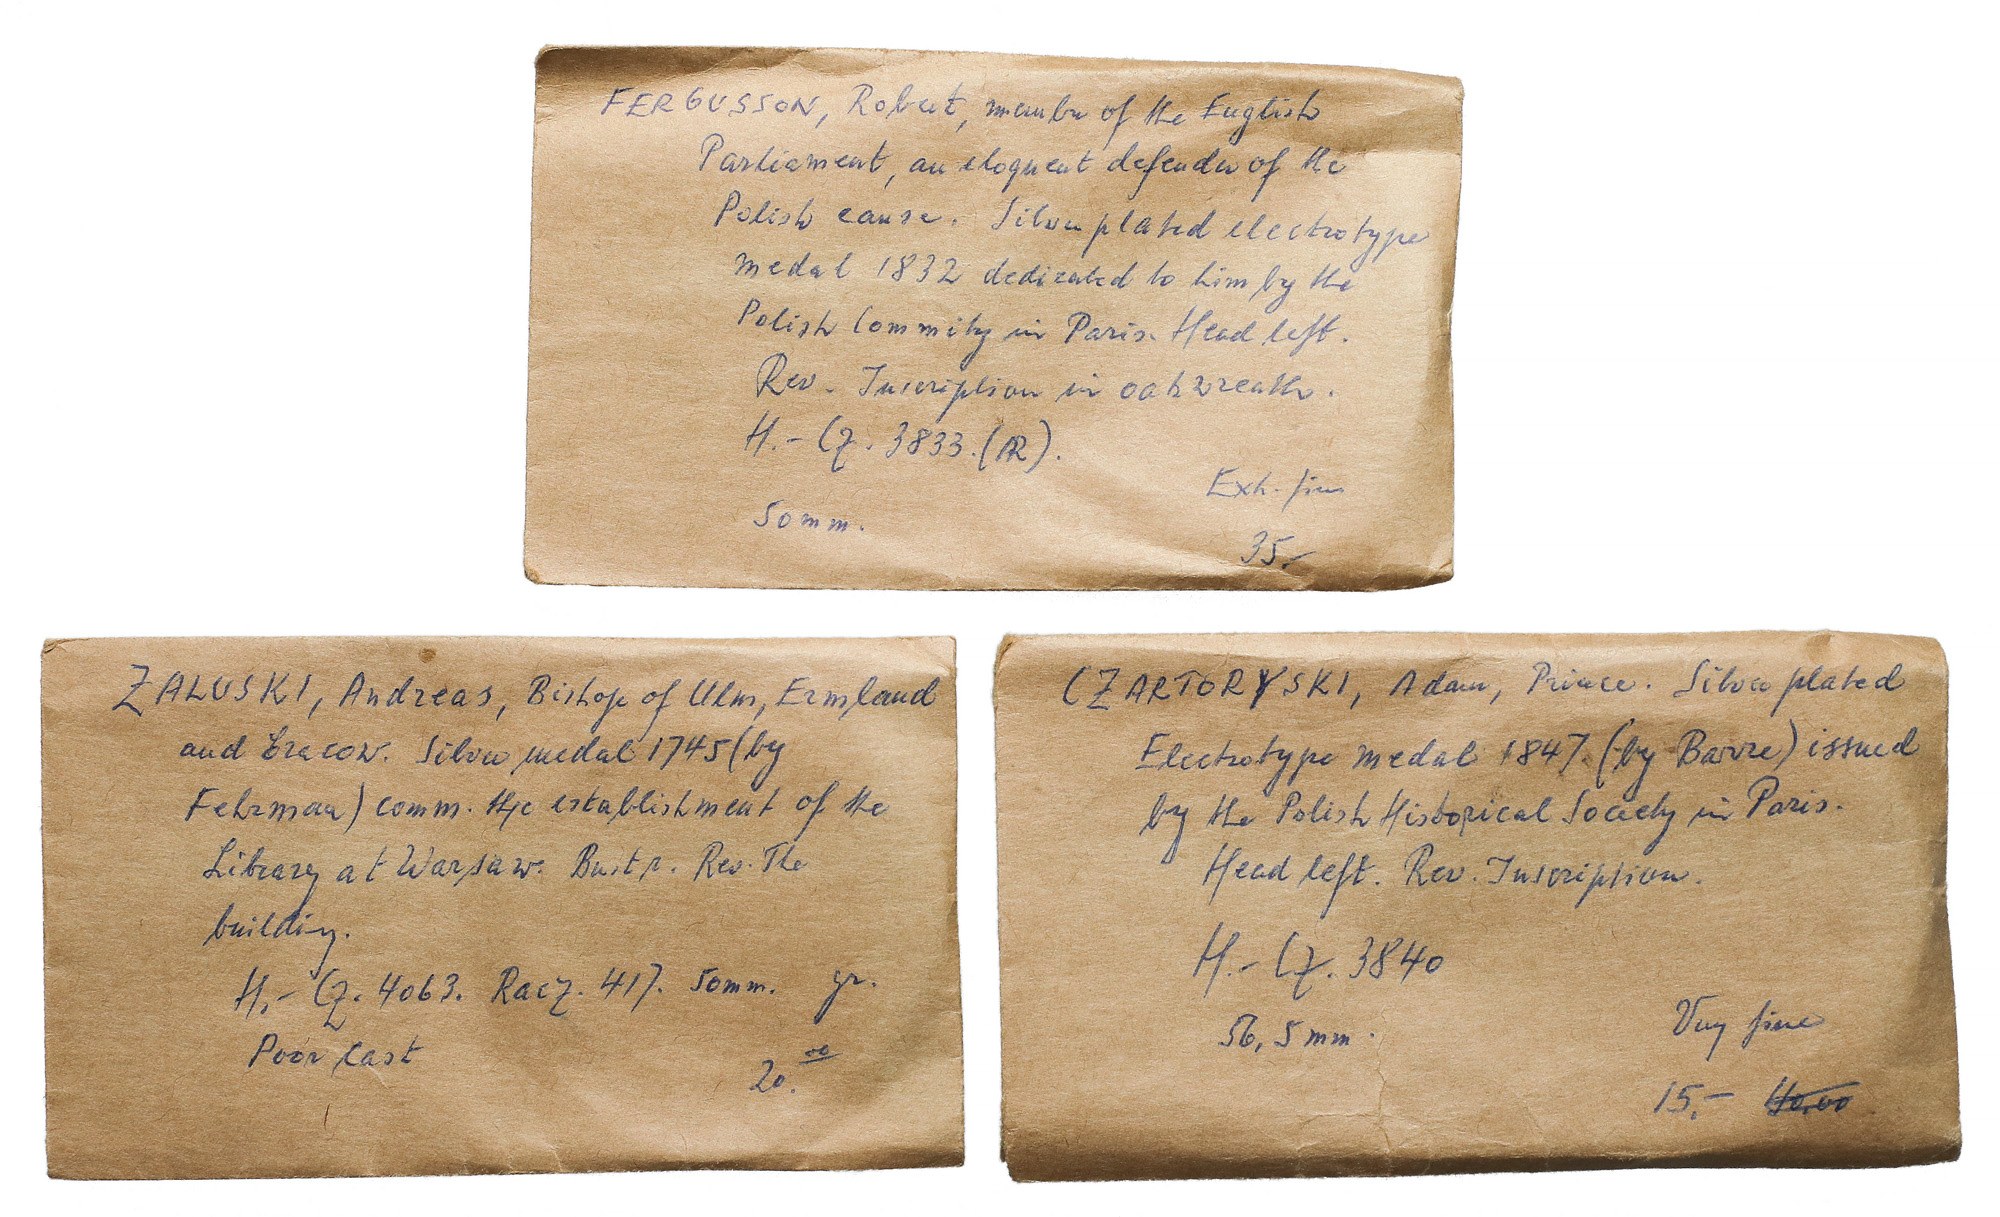 FERGUSSON, Robert, member of the English
Parliament, an eloquent defender of the
Polish cause. Silver plated electrotype
medal 1832 dedicated to him by the
Polish Commity in Paris. Head left.
Rev. Inscription in oakwreath.
H.-Cz. 3833.(AR).
Exh. fine
50mm.
35.-
ZALUSKI, Andreas, Bishop of Ulm, Ermland
and Cracow. Silver medal 1745 (by
Fehrman) comm. the establishment of the
Library at Warsaw. Bust r. Rev. The
building.
H.-Cz. 4063. Racz. 417. 50mm. gr.
Poor cast
20.00
CZARTORYSKI, Adam, Prince. Silver plated
Electrotype medal 1847. (by Barre) issued
by the Polish Historical Society in Paris.
Head left. Rev. Inscription.
H.-Cz. 3840
56,5mm.
Very fine
15.- 40.00